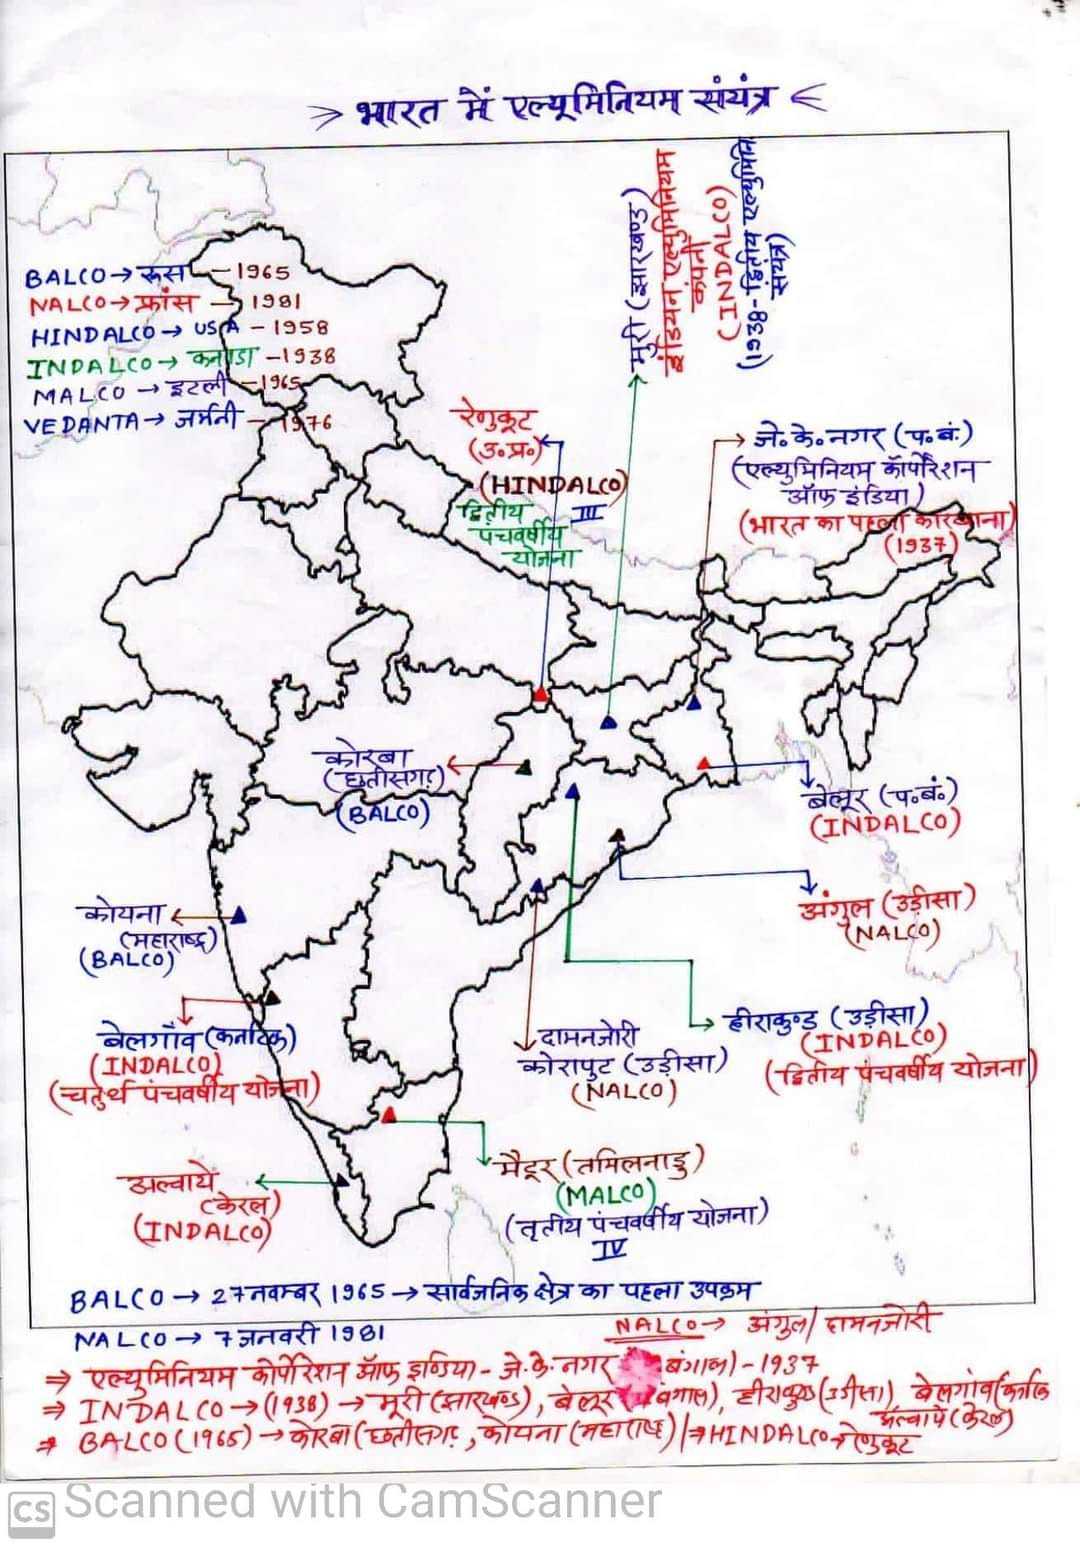 > भारत में एल्यूमिनियम संयंत्र <
BALCO → रूस - 1965
NALCO → फ्रांस - 1981
HINDALCO → USA - 1958
INDALCO → कनाडा - 1938
MALCO → इटली - 1965
VEDANTA → जर्मनी - 1976
मूरी (झारखण्ड)
इंडियन एल्युमिनियम
कंपनी
(INDALCO)
(1938 - द्वितीय एल्युमिनि
संयंत्र)
रेणुकूट
(उ॰प्र॰)
(HINDALCO)
द्वितीय III
पंचवर्षीय
योजना
जे॰के॰नगर (प॰बं॰)
(एल्युमिनियम कॉर्पोरेशन
ऑफ इंडिया)
(भारत का पहला कारखाना)
(1937)
कोरबा
(छत्तीसगढ़)
(BALCO)
बेलूर (प॰बं॰)
(INDALCO)
अंगुल (उड़ीसा)
(NALCO)
कोयना
(महाराष्ट्र)
(BALCO)
बेलगाँव (कर्नाटक)
(INDALCO)
(चतुर्थ पंचवर्षीय योजना)
दामनजोरी
कोरापुट (उड़ीसा)
(NALCO)
हीराकुण्ड (उड़ीसा)
(INDALCO)
(द्वितीय पंचवर्षीय योजना)
मैटूर (तमिलनाडु)
(MALCO)
(तृतीय पंचवर्षीय योजना)
IV
अल्वाये
(केरल)
(INDALCO)
BALCO → 27 नवम्बर 1965 → सार्वजनिक क्षेत्र का पहला उपक्रम
NALCO → 7 जनवरी 1981
NALCO → अंगुल / दामनजोरी
⇒ एल्युमिनियम कोर्पोरेशन ऑफ इण्डिया - जे.के. नगर बंगाल) - 1937
⇒ INDALCO → (1938) → मूरी (झारखण्ड), बेलूर बंगाल), हीराकुण्ड (उडीसा) बेलगांव (कर्नाटक
अल्वाये (केरल)
⇒ BALCO (1965) → कोरबा (छत्तीसगढ़, कोयना (महाराष्ट्र) / ⇒ HINDALCO → रेणुकूट
CS Scanned with CamScanner